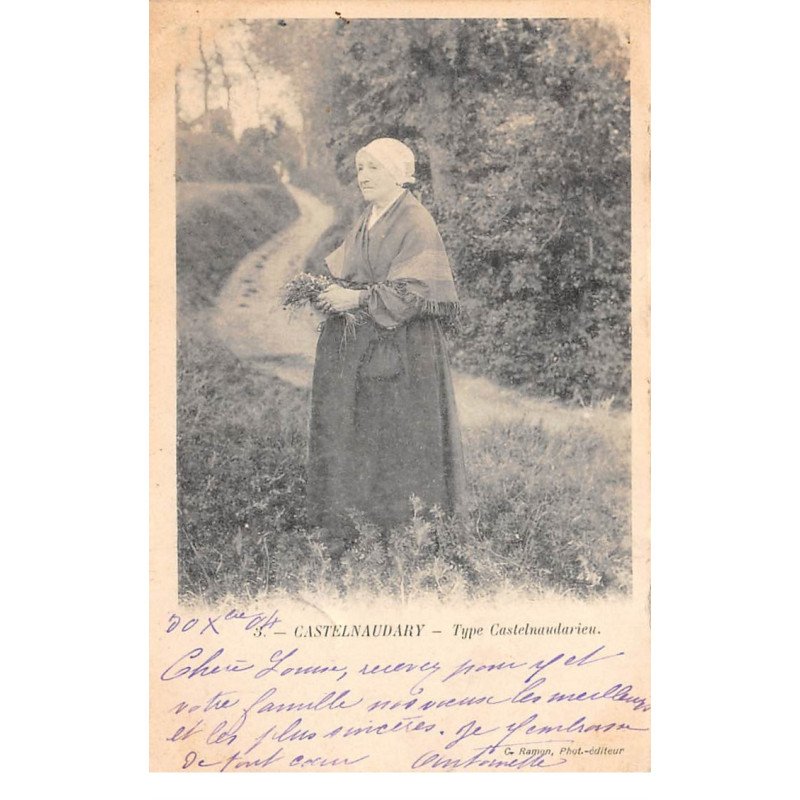 30 Xbre 04
3. — CASTELNAUDARY — Type Castelnaudarieu.
Chère Louise, recevez pour et
votre famille nos vœux les meilleurs
et les plus sincères. Je
de tout cœur Antoinette
C. Ramon, Phot.-éditeur